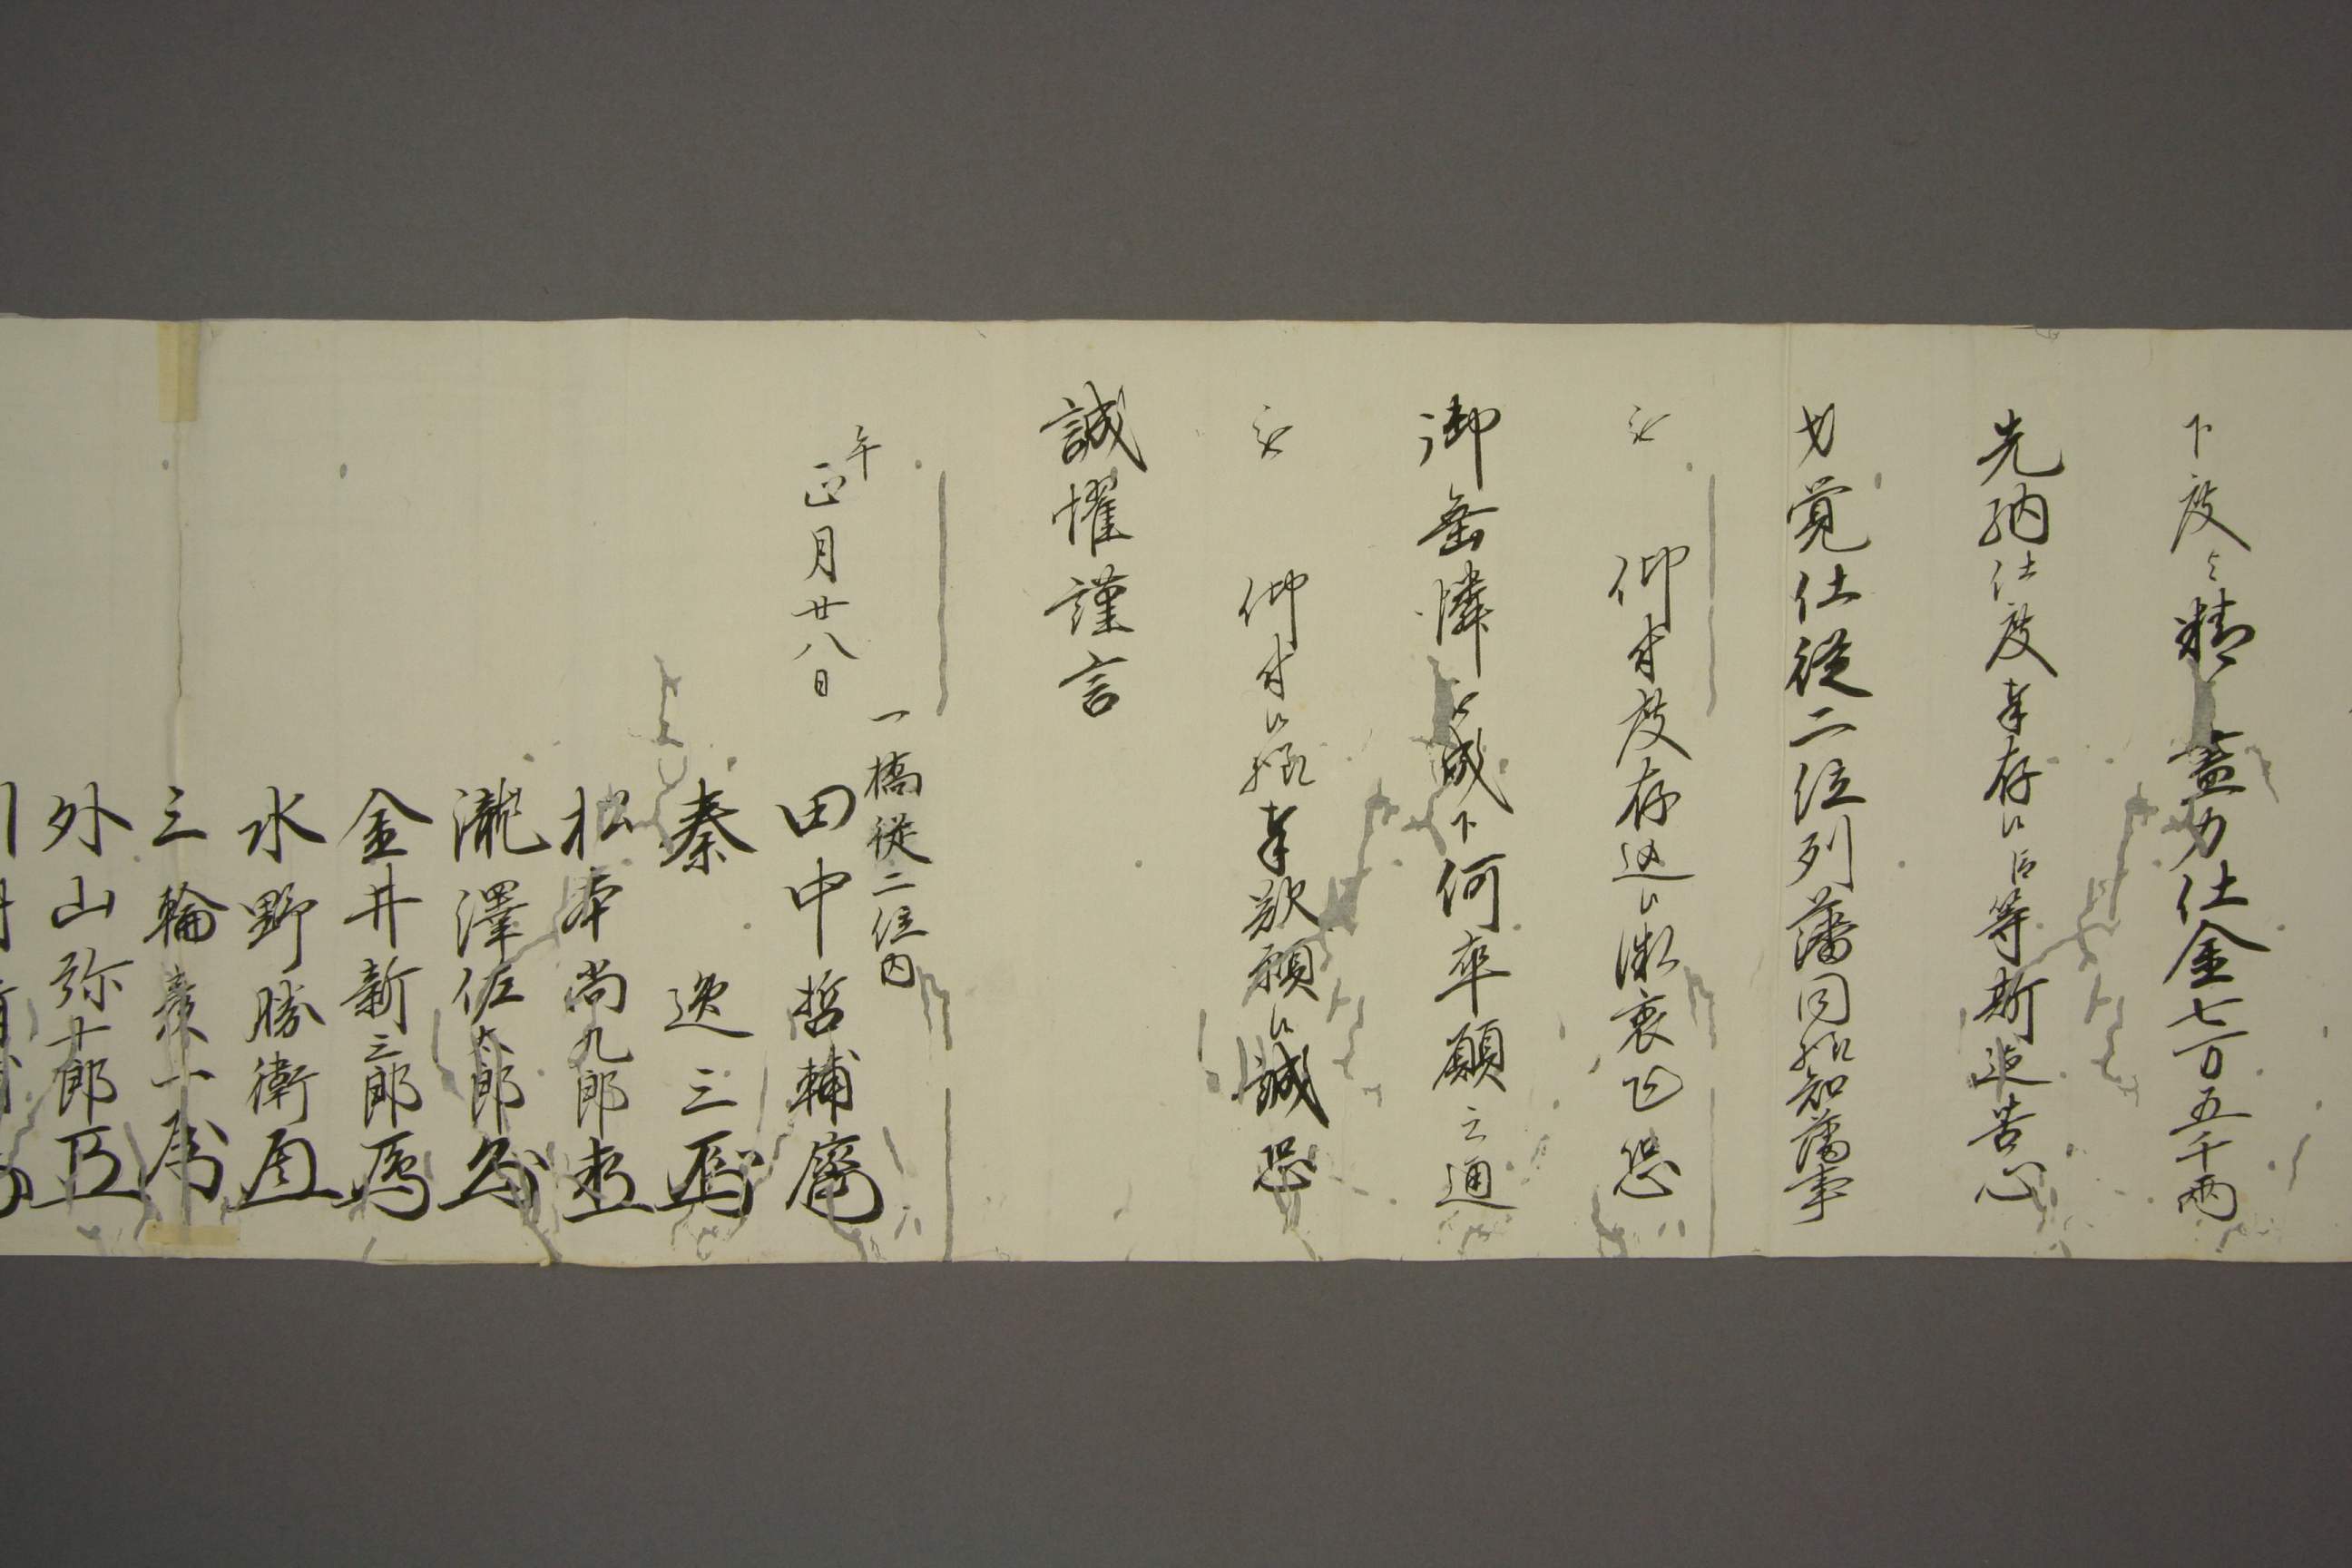 下度々精〻盡力仕金七万五千両
先納仕度奉存候臣等斯迄苦心
才覚仕従二位列藩同様知藩事
被 仰付度存込候微衷御恐
御垂憐被成下何卒願之通
被 仰付候様奉歎願候誠恐
誠懼謹言
午
正月廿八日
一橋従二位内
田中哲輔
秦 逸三
松本尚九郎
瀧澤佐太郎
金井新三郎
水野勝衛
三輪 一
外山弥十郎